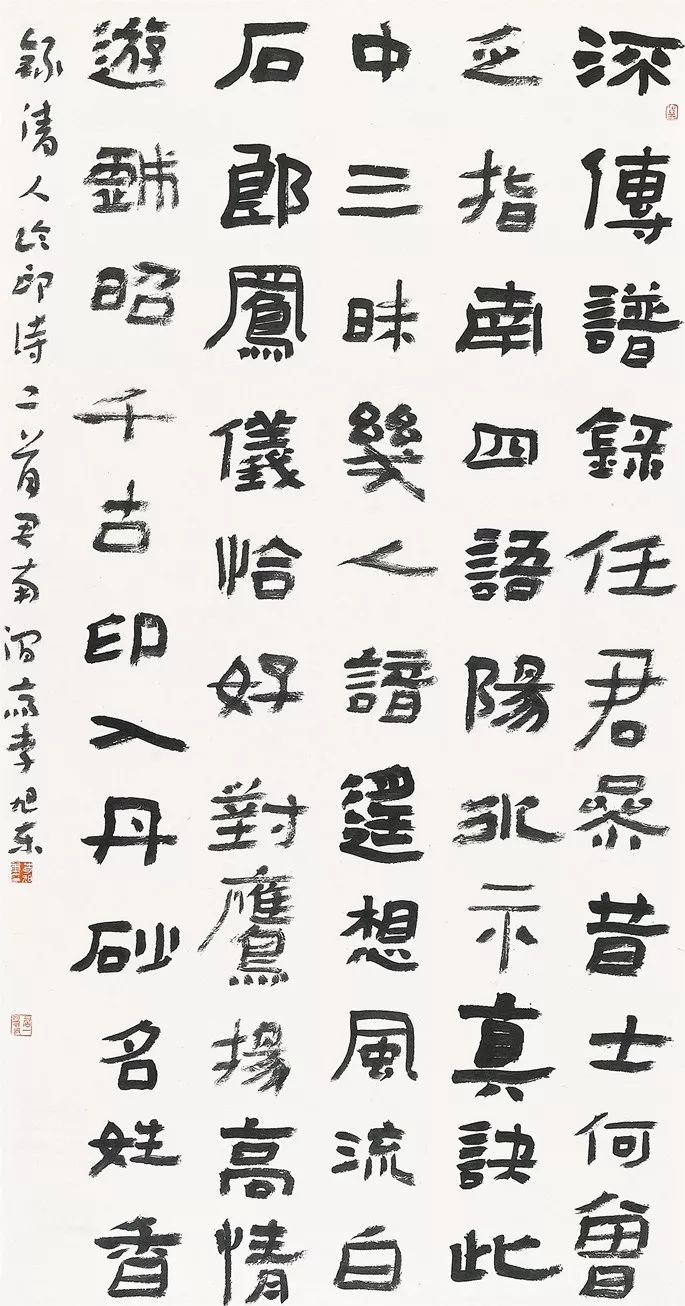 深傳譜錄任君參昔士何曾
乏指南四語陽冰示真訣此
中三昧幾人諳遥想風流白
石郎鳳儀恰好對鷹揚高情
遊昭千古印入丹砂名姓香
錄清人論印詩二首齋李旭東